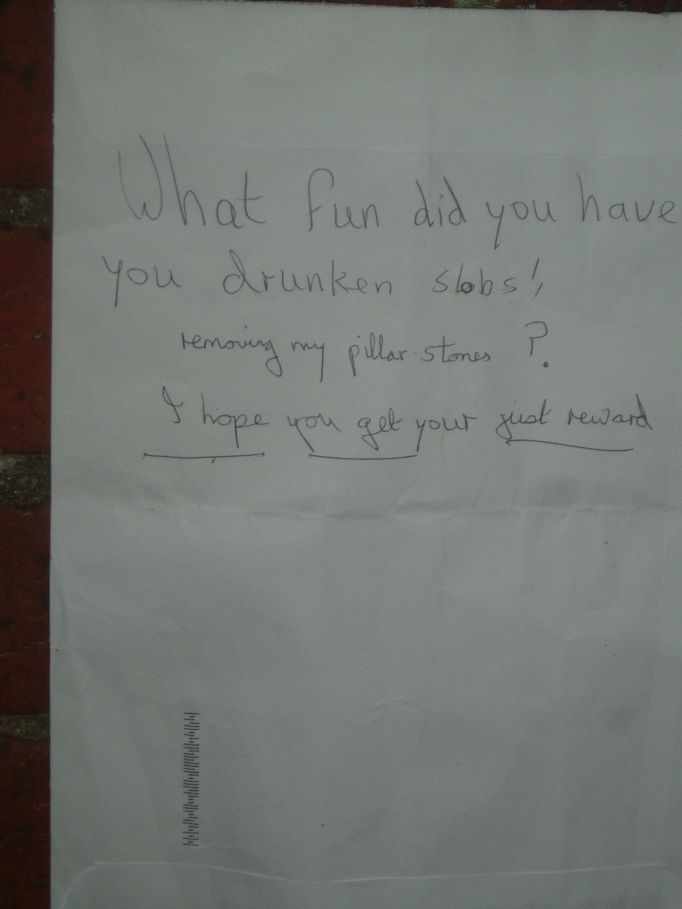 What fun did you have
you drunken slobs!,
removing my pillar stones ?
I hope you get your just reward